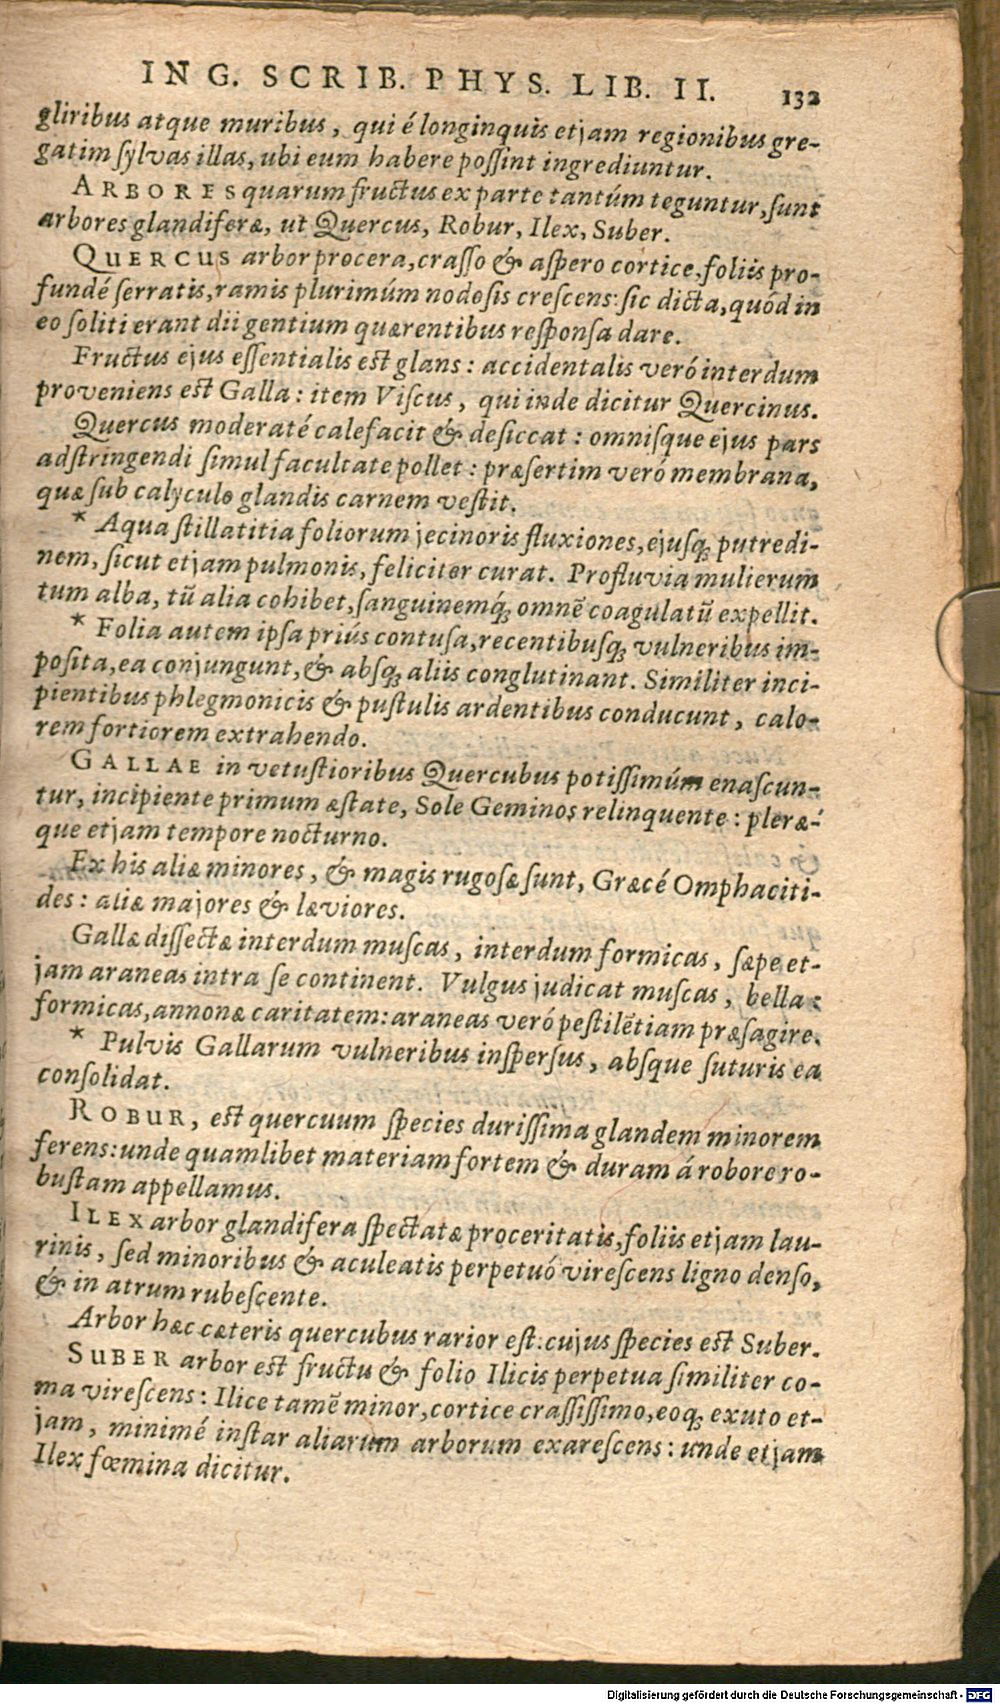 ING. SCRIB. PHYS. LIB. II. 132
gliribus atque muribus, qui é longinquis etjam regionibus gre-
gatim sylvas illas, ubi eum habere possint ingrediuntur.
ARBORES quarum fructus ex parte tantúm teguntur, sunt
arbores glandiferæ, ut Quercus, Robur, Ilex, Suber.
QUERCUS arbor procera, crasso & aspero cortice, foliis pro-
fundé serratis, ramis plurimúm nodosis crescens: sic dicta, quód in
eo soliti erant dii gentium quærentibus responsa dare.
Fructus ejus essentialis est glans: accidentalis veró interdum
proveniens est Galla: item Viscus, qui inde dicitur Quercinus.
Quercus moderaté calefacit & desiccat: omnisque ejus pars
adstringendi simul facultate pollet: præsertim veró membrana,
quæ sub calyculo glandis carnem vestit.
* Aqua stillatitia foliorum jecinoris fluxiones, ejusq; putredi-
nem, sicut etjam pulmonis, feliciter curat. Profluvia mulierum
tum alba, tū alia cohibet, sanguinemq́; omnē coagulatū expellit.
* Folia autem ipsa priús contusa, recentibusq; vulneribus im-
posita, ea conjungunt, & absq; aliis conglutinant. Similiter inci-
pientibus phlegmonicis & pustulis ardentibus conducunt, calo-
rem fortiorem extrahendo.
GALLAE in vetustioribus Quercubus potissimúm enascun-
tur, incipiente primum æstate, Sole Geminos relinquente: pleræ-
que etjam tempore nocturno.
Ex his aliæ minores, & magis rugosæ sunt, Græcé Omphaciti-
des: aliæ majores & læviores.
Gallæ dissectæ interdum muscas, interdum formicas, sæpe et-
jam araneas intra se continent. Vulgus judicat muscas, bella:
formicas, annonæ caritatem: araneas veró pestilētiam præsagire.
* Pulvis Gallarum vulneribus inspersus, absque suturis ea
consolidat.
ROBUR, est quercuum species durissima glandem minorem
ferens: unde quamlibet materiam fortem & duram á robore ro-
bustam appellamus.
ILEX arbor glandifera spectatæ proceritatis, foliis etjam lau-
rinis, sed minoribus & aculeatis perpetuó virescens ligno denso,
& in atrum rubescente.
Arbor hæc cæteris quercubus rarior est: cujus species est Suber.
SUBER arbor est fructu & folio Ilicis perpetua similiter co-
ma virescens: Ilice tamē minor, cortice crassissimo, eoq; exuto et-
jam, minimé instar aliarum arborum exarescens: unde etjam
Ilex fœmina dicitur.
Digitalisierung gefördert durch die Deutsche Forschungsgemeinschaft - DFG